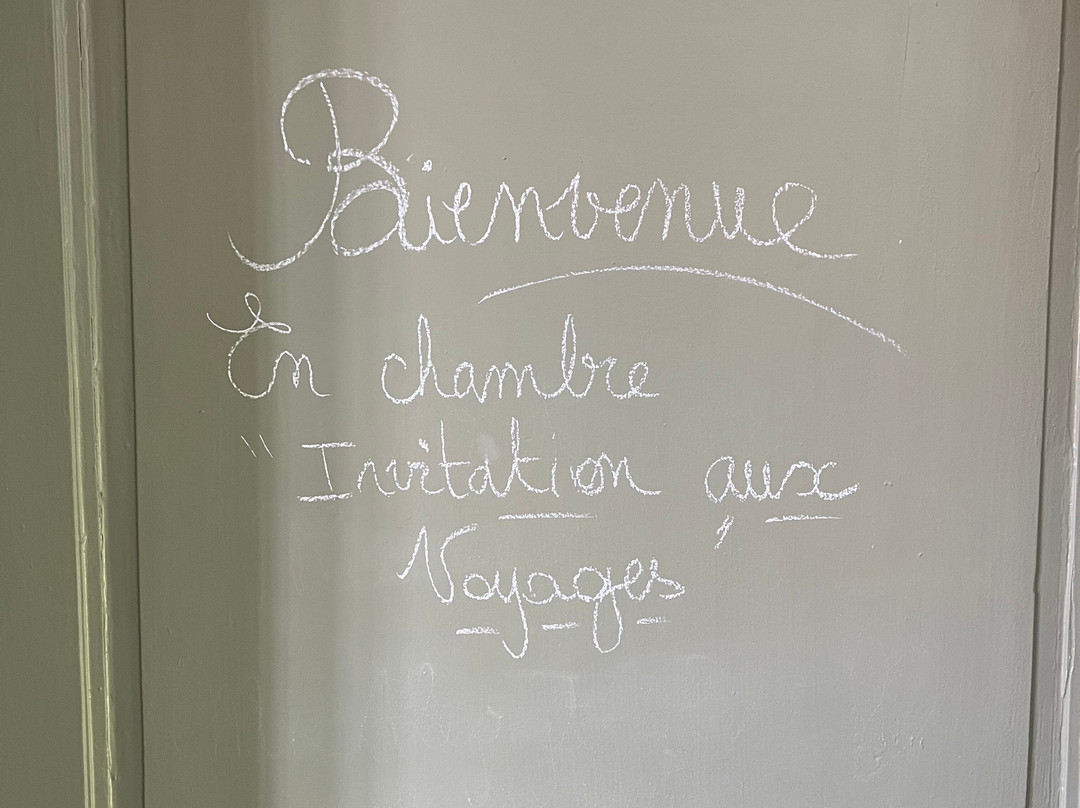 Bienvenue
En chambre
" Invitation aux
Voyages "